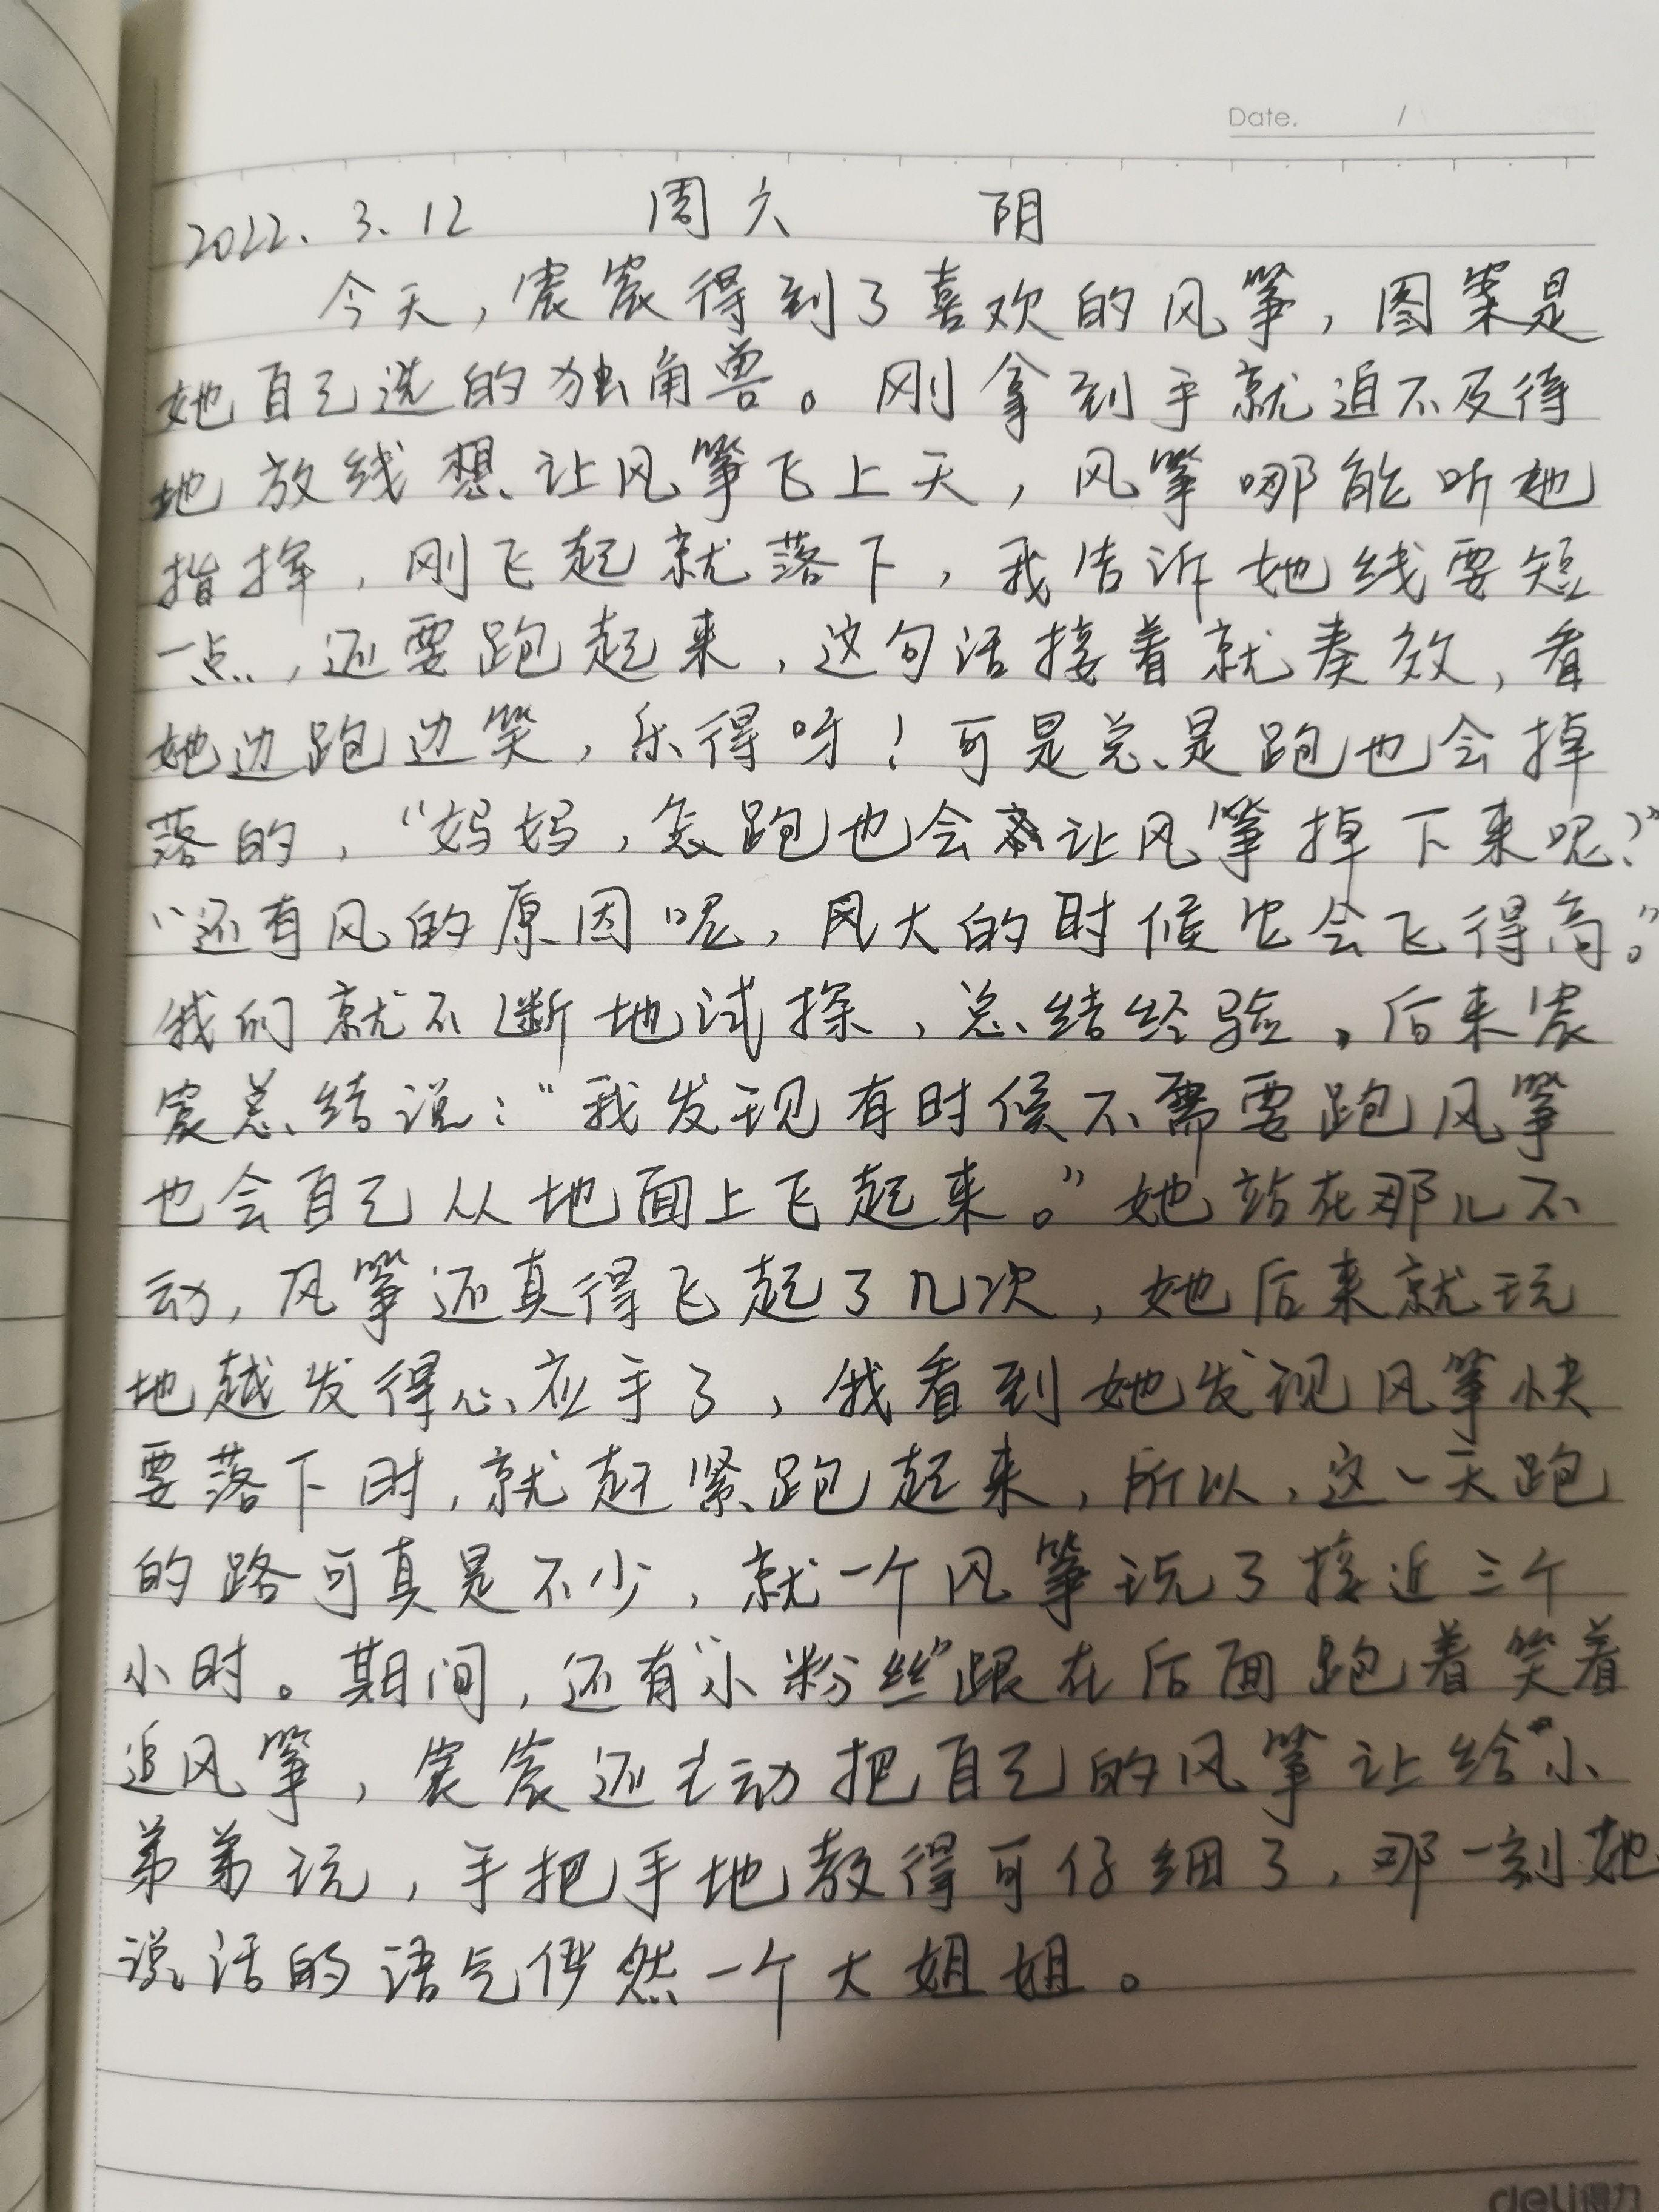 Date. /
2022.3.12 周六 阴
今天，宸宸得到了喜欢的风筝，图案是
她自己选的独角兽。刚拿到手就迫不及待
地放线想让风筝飞上天，风筝哪能听她
指挥，刚飞起就落下，我告诉她线要短
一点，还要跑起来，这句话接着就奏效，看
她边跑边笑，乐得呀！可是总是跑也会掉
落的，“妈妈，怎跑也会让风筝掉下来呢？”
“还有风的原因呢，风大的时候也会飞得高。”
我们就不断地试探，总结经验，后来宸
宸总结说：“我发现有时候不需要跑风筝
也会自己从地面上飞起来。”她站在那儿不
动，风筝还真得飞起了几次，她后来就玩
地越发得心应手了，我看到她发现风筝快
要落下时，就赶紧跑起来，所以，这一天跑
的路可真是不少，就一个风筝玩了接近三个
小时。期间，还有“小粉丝”跟在后面跑着笑着
追风筝，宸宸还主动把自己的风筝让给小
弟弟玩，手把手地教得可仔细了，那一刻她
说话的语气俨然一个大姐姐。
deli得力